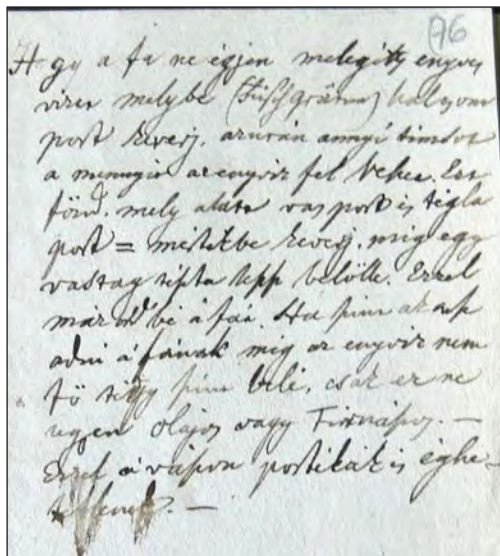 76
Hogy a fa ne égjen melegitts enyves
vizes melybe (Fischgräten) halcsont
post keverj, azután annyi timsót
a mennyit az enyviz fel vehet. Ezt
förd. mely alatt vas post és tégla
post = mistikbe keverj, mig egy
vastag tista lepp belölle. Ezzel
mázold bé á fát. Ha szint akarsz
adni á fának mig az enyviz nem
fő tégy szint belé, csak ez ne
legyen olajos vagy Firnájsos. —
Ezzel á vászon portékák is éghe-
tetlenek. —